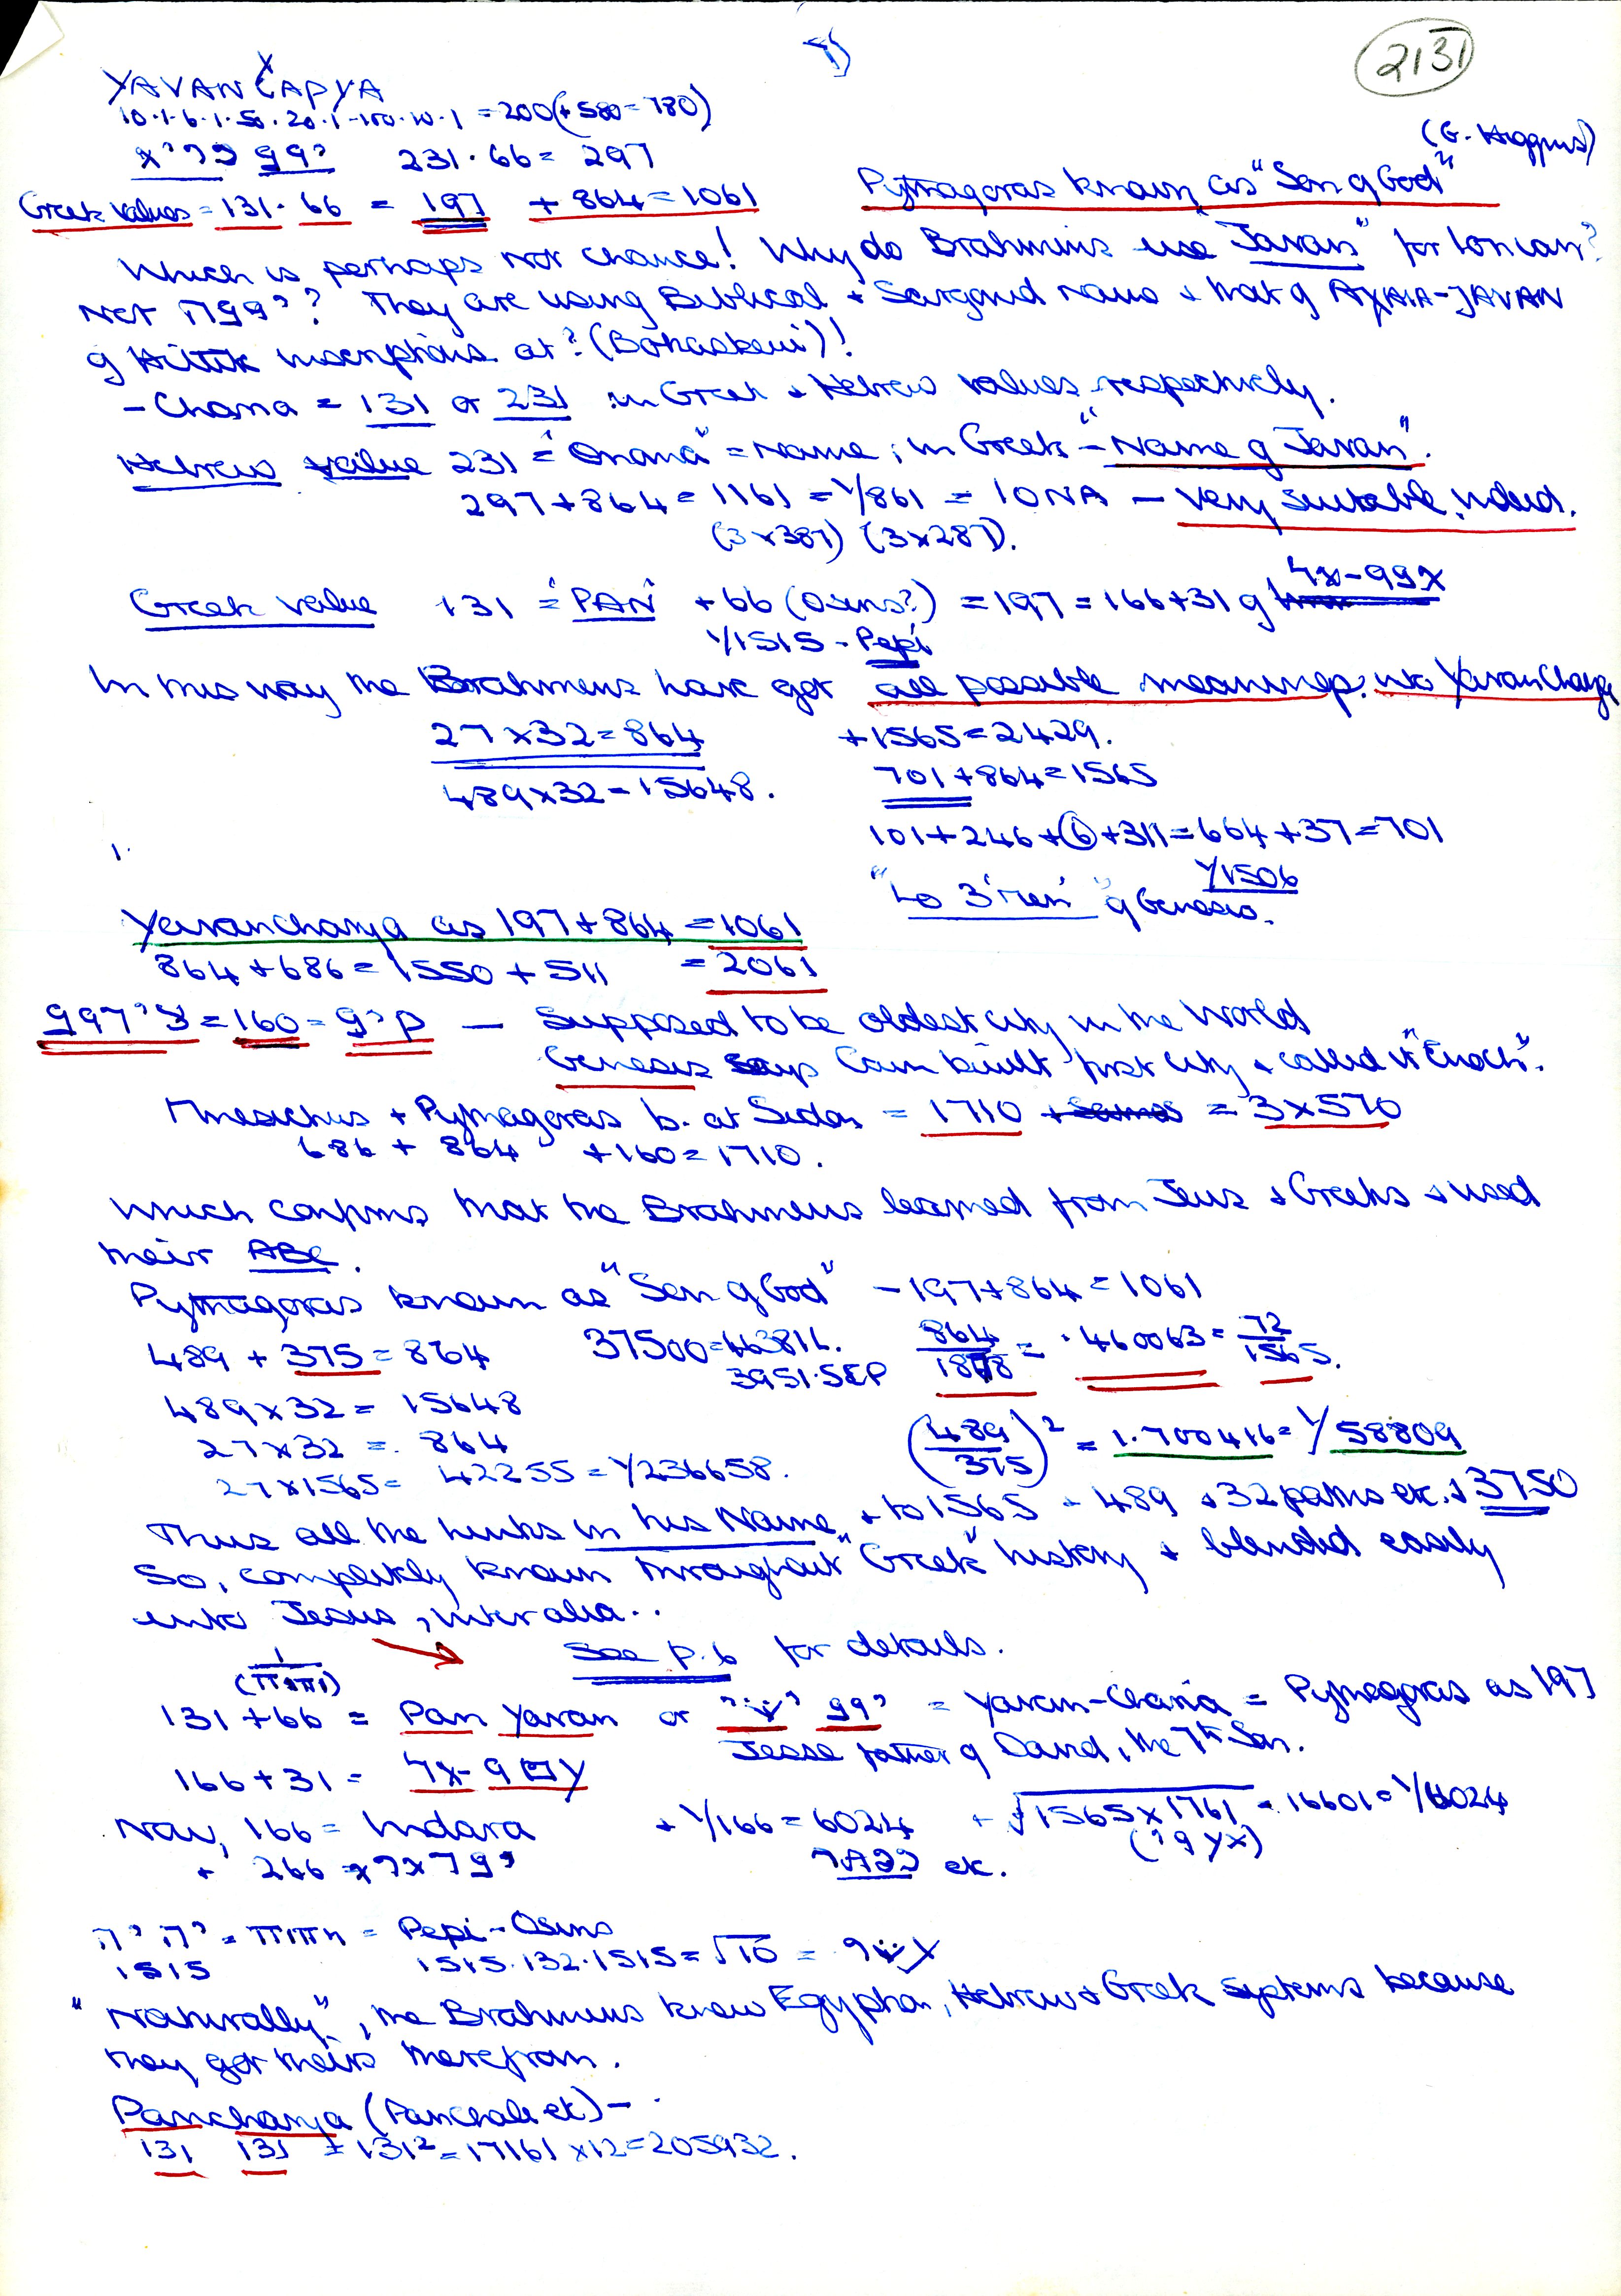 8)
2131
YAVAN CAPYA
X
10.1.6.1.50.20.1-100.10.1 = 200 (+580=780)
231.66 = 297
(G. Higgins)
Greek Values = 131.66 = 197 + 864 = 1061
Pythagoras known as "Son of God"
Which is perhaps not chance! Why do Brahmins use "Javan" for Ionian?
Not ? They are using Biblical + Sargonid name + that of AXAIA-JAVAN
of Hittite inscriptions at? (Bohaskeui)!
- Charia = 131 or 231 in Greek + Hebrew values respectively.
Hebrew value 231 = "Onoma" = Name, in Greek - "Name of Javan".
297+864 = 1161 = 1/861 = IONA - very suitable, indeed.
(3x387) (3x287).
Greek value 131 = 'PAN' + 66 (Osiris?) = 197 = 166+31 of
1/1515 - Pepi
In this way the Brahmens have got all possible meanings into Yavancharya
27x32=864 +1565=2429.
489x32=15648. 701+864=1565
101+246+(6)+311=664+37=701
1/1506
"Lo 3 men" of Genesis.
Yavancharya as 197+864 = 1061
864+686=1550+511 = 2061
= 160 = — Supposed to be oldest city in the World
Genesis says Cain built first city + called it "Enoch".
Mnesichus + Pythagoras b. at Sidon = 1710 = 3x570
686 + 864 +160=1710.
Which confirms that the Brahmens learned from Jews + Greeks + used
their ABC.
Pythagoras known as "Son of God" - 197+864=1061
489 + 375 = 864 37500 = 463816. 864/1878 = .460063 = 72/1565.
3951.SEP
489x32 = 15648
27x32 = 864 (489/375)² = 1.700416 = 1/58809
27x1565 = 42255 = 1/236658.
Thus all the links in his Name + to 1565 - 489 + 32 paths etc. + 3750
So, completely known throughout "Greek" history + blended easily
into Jesus, inter alia..
See p.6 for details.
131 + 66 = Pan Yavan or = Yavan-Charia = Pythagoras as 197
Jesse father of David, the 7th Son.
166+31 =
Now, 166 = Indara + 1/166 = 6024 + √1565x1761 = 16601 = 1/6024
+ 266 = etc.
= = Pepi-Osiris
1515 1515.132.1515 = √10 =
"Naturally", the Brahmens knew Egyptian, Hebrew + Greek systems because
they got theirs therefrom.
Pancharya (Panchala etc) -
131 131 + 131² = 17161 x12=205932.